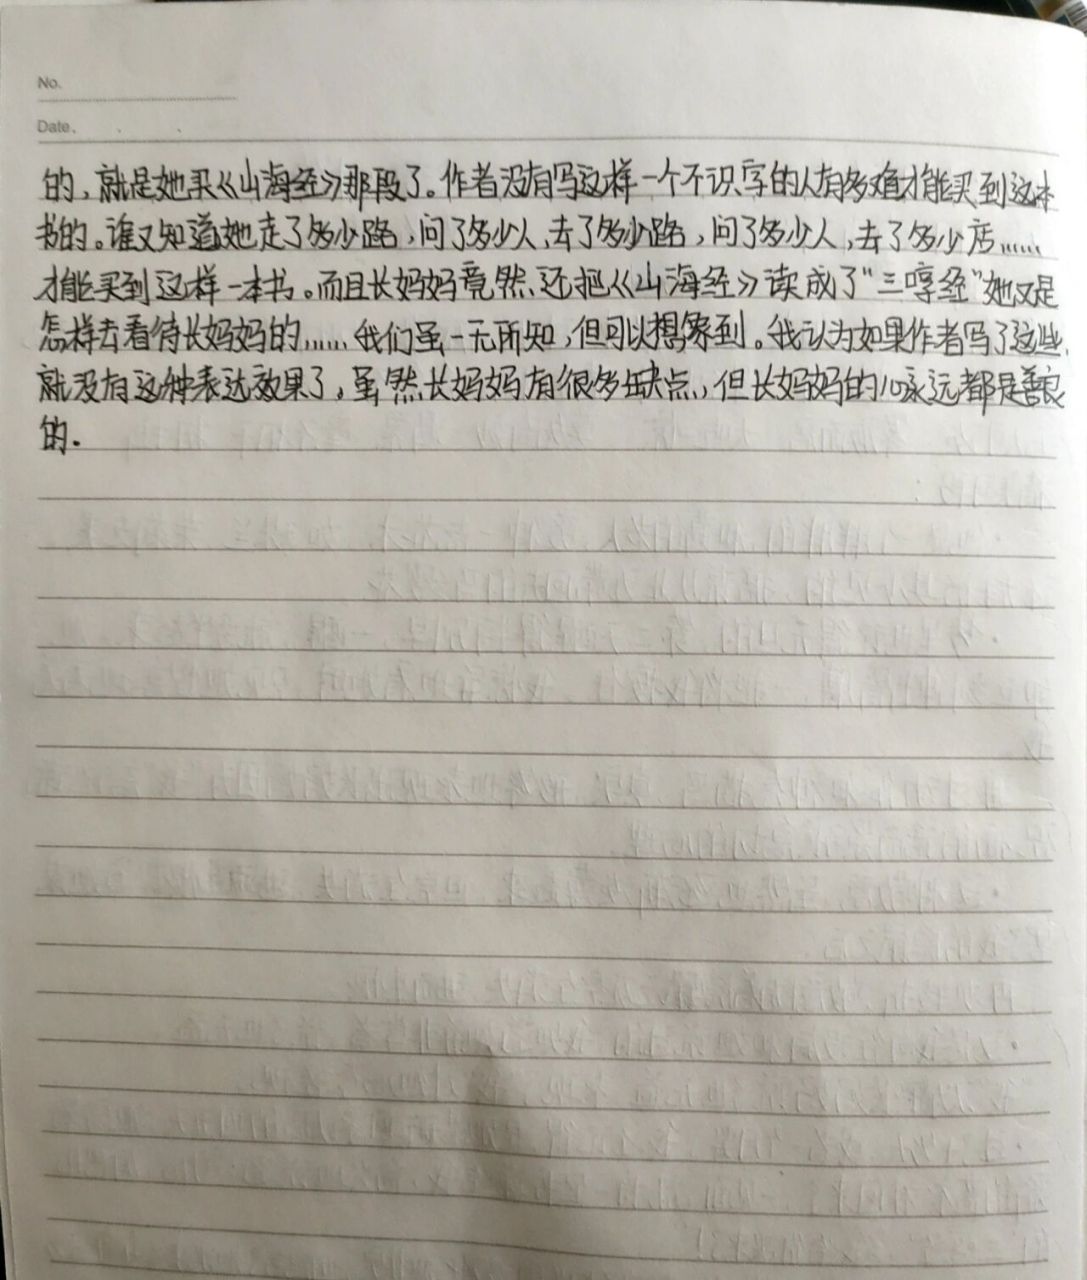 No.
Date.
的,就是她买《山海经》那段了。作者没有写这样一个不识字的人有多难才能买到这本
书的。谁又知道她走了多少路,问了多少人,去了多少路,问了多少人,去了多少店……
才能买到这样一本书。而且长妈妈竟然还把《山海经》读成了"三哼经"她又是
怎样去看待长妈妈的……我们虽一无所知,但可以想象到。我认为如果作者写了这些,
就没有这种表达效果了,虽然长妈妈有很多缺点,但长妈妈的心永远都是善良
的.